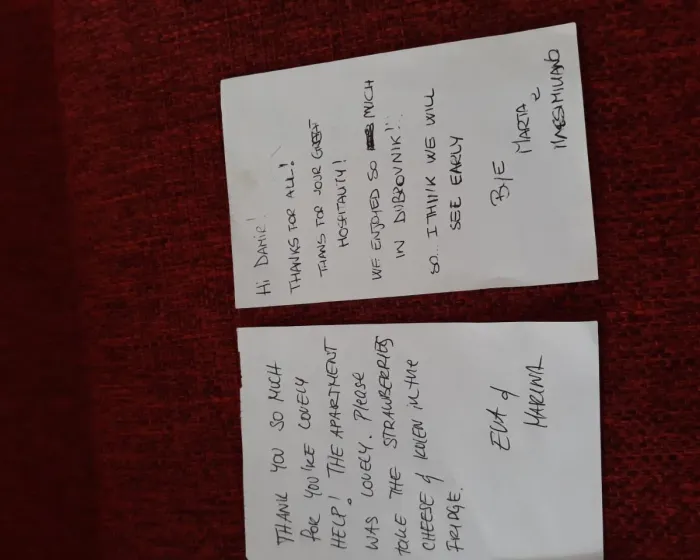 Hi DAMIR!
THANKS FOR ALL!
THANS FOR YOUR GREAT
HOSPITALITY!
WE ENJOYED SO MUCH
IN DUBROVNIK!..
SO... I THINK WE WILL
SEE EARLY
BYE
MARTA
MASSIMILIANO
THANK YOU SO MUCH
FOR YOU'RE LOVELY
HELP! THE APARTMENT
WAS LOVELY. Please
TAKE THE STRAWBERRIES
CHEESE & KULEN in the
FRIDGE.
EVA &
MARINA